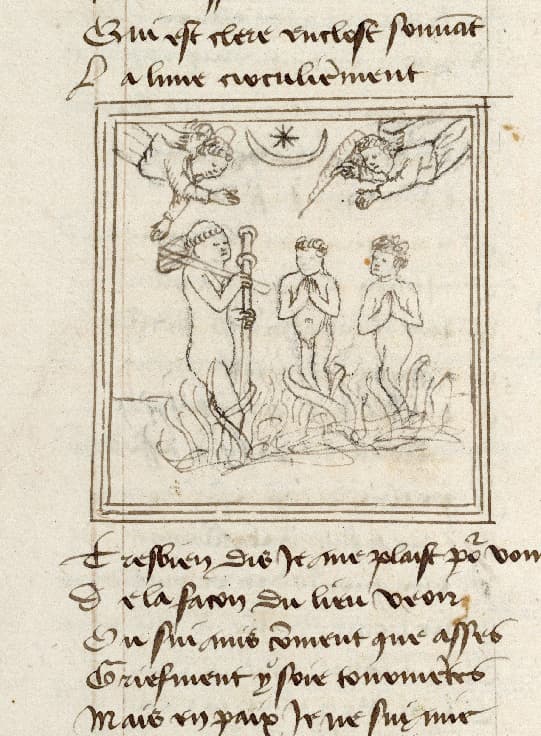 Qui est clere enclost souuāt
La lune circuliermēent
Tresbien dis Je me plaist por vou
De la facon du lieu veoir
Ou sui mis cōment que asses
Griefment y soie tourmētes
Mais en paix Je ne sui mie